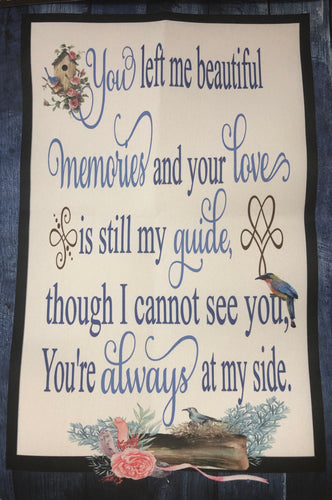 You left me beautiful
memories and your love
is still my guide,
though I cannot see you,
You're always at my side.